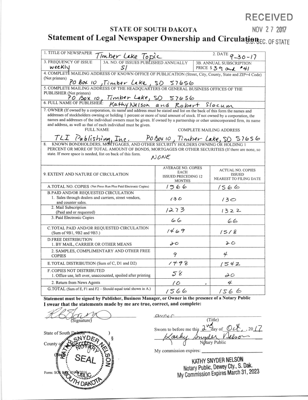 RECEIVED
NOV 27 2017
S.D. SEC. OF STATE
STATE OF SOUTH DAKOTA
Statement of Legal Newspaper Ownership and Circulation
1. TITLE OF NEWSPAPER Timber Lake Topic
2. DATE 9-30-17
3. FREQUENCY OF ISSUE weekly
3A. NO. OF ISSUES PUBLISHED ANNUALLY 51
3B. ANNUAL SUBSCRIPTION PRICE $39 and $41
4. COMPLETE MAILING ADDRESS OF KNOWN OFFICE OF PUBLICATION (Street, City, County, State and ZIP+4 Code) (Not printers)
PO Box 10, Timber Lake, SD 57656
5. COMPLETE MAILING ADDRESS OF THE HEADQUARTERS OR GENERAL BUSINESS OFFICES OF THE PUBLISHER (Not printers)
PO Box 10, Timber Lake, SD 57656
6. FULL NAME OF PUBLISHER Kathy Nelson and Robert Slocum
7. OWNER (If owned by a corporation, its name and address must be stated and also on the back of this form the names and addresses of stockholders owning or holding 1 percent or more of total amount of stock. If not owned by a corporation, the names and addresses of the individual owners must be given. If owned by a partnership or other unincorporated firm, its name and address, as well as that of each individual must be given.
FULL NAME
COMPLETE MAILING ADDRESS
TLI Publishing Inc. PO Box 10, Timber Lake, SD 57656
8. KNOWN BONDHOLDERS, MORTGAGES, AND OTHER SECURITY HOLDERS OWNING OR HOLDING 1 PERCENT OR MORE OF TOTAL AMOUNT OF BONDS, MORTGAGES OR OTHER SECURITIES (If there are none, so state. If more space is needed, list on back of this form.
NONE
9. EXTENT AND NATURE OF CIRCULATION
AVERAGE NO. COPIES EACH ISSUES PRECEDING 12 MONTHS
ACTUAL NO. COPIES ISSUED NEAREST TO FILING DATE
A. TOTAL NO. COPIES 1566 1566
B. PAID AND/OR REQUESTED CIRCULATION
1. Sales through dealers and carriers, street vendors, and counter sales 130 130
2. Mail Subscription (Paid and or requested) 1273 1322
3. Paid Electronic Copies 66 66
C. TOTAL PAID AND/OR REQUESTED CIRCULATION (Sum of 9B1, 9B2 and 9B3) 1469 1518
D. FREE DISTRIBUTION
1. BY MAIL, CARRIER OR OTHER MEANS 20 20
2. SAMPLES, COMPLIMENTARY AND OTHER FREE COPIES 9 4
E. TOTAL DISTRIBUTION (Sum of C, D1 and D2) 1498 1542
F. COPIES NOT DISTRIBUTED
1. Office use, left over, unaccounted, spoiled after printing 58 20
2. Return from News Agents 10 4
G. TOTAL (Sum of E, F1 and F2 - Should equal total shown in A.) 1566 1566
Statement must be signed by Publisher, Business Manager, or Owner in the presence of a Notary Public
I swear that the statements made by me are true, correct, and complete:
(Signature)
(Title)
State of South Dakota
County of
Sworn to before me this 2nd day of Oct., 2017
Kathy Snyder Nelson
Notary Public
My commission expires
KATHY SNYDER NELSON
SEAL
SOUTH DAKOTA
KATHY SNYDER NELSON
Notary Public, Dewey Cty., S. Dak.
My Commission Expires March 31, 2023